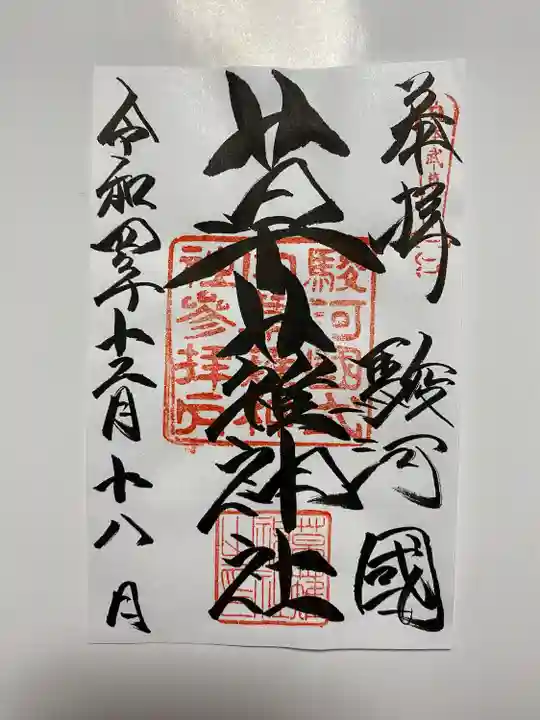 奉拝
駿河國
草薙神社
令和四年十二月十八日
駿河國式
内草薙神
社參拝印
草薙
神社
之印